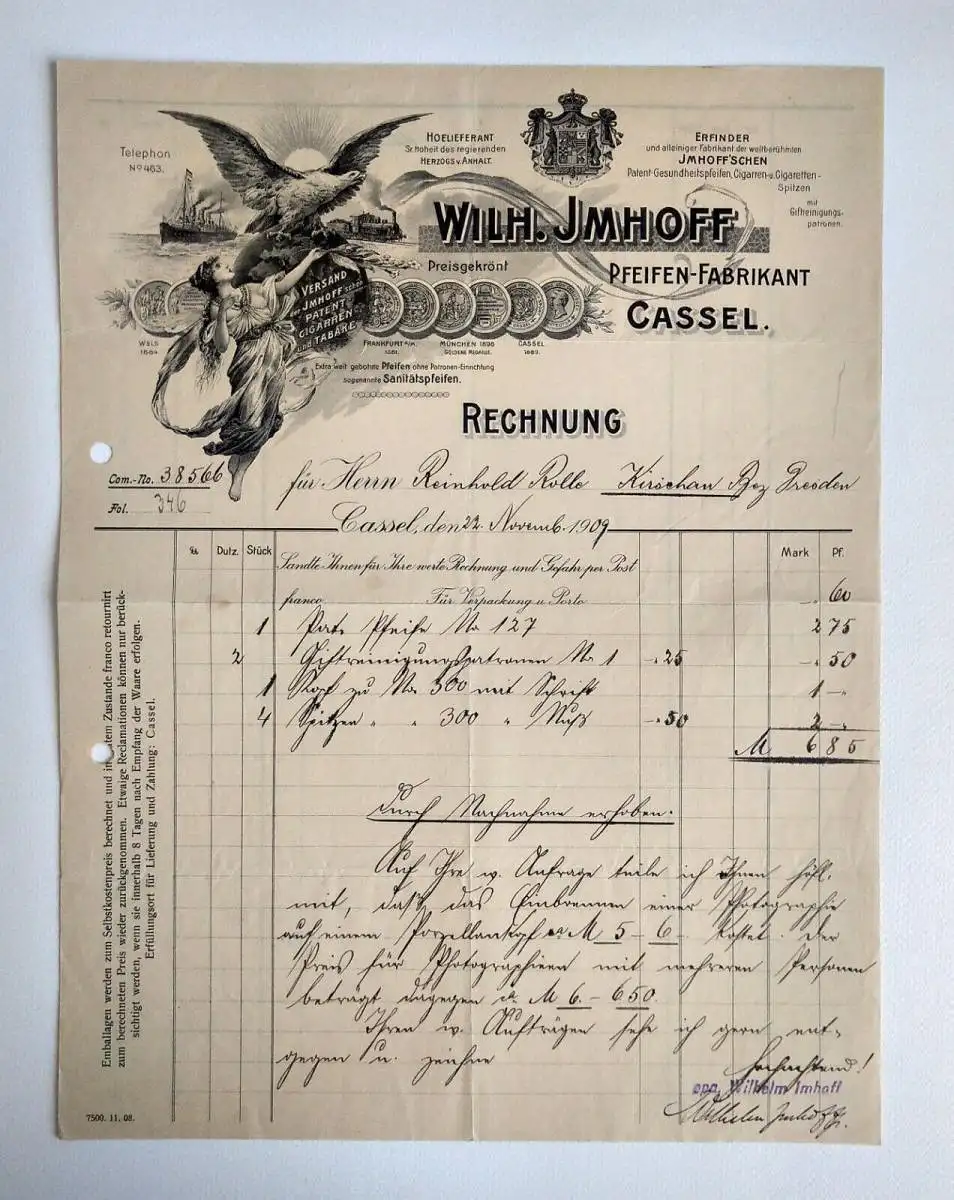 Telephon
No 463.
HOFLIEFERANT
Sr. Hoheit des regierenden
HERZOGS v. ANHALT.
ERFINDER
und alleiniger Fabrikant der weltberühmten
JMHOFF'SCHEN
Patent-Gesundheitspfeifen, Cigarren-u. Cigaretten-
Spitzen
mit
Giftreinigungs-
patronen.
WILH. JMHOFF
Preisgekrönt
PFEIFEN-FABRIKANT
CASSEL.
VERSAND
der JMHOFF'schen
PATENT
CIGARREN
und TABAKE
WELS
1884.
FRANKFURT a/M.
1881.
MÜNCHEN 1898
GOLDENE MEDAILLE.
CASSEL
1889.
Extra weit gebohrte Pfeifen ohne Patronen-Einrichtung
sogenannte Sanitätspfeifen.
RECHNUNG
Com.-No. 38566
Fol. 346
für Herrn Reinhold Rolle Kirschau Bez Dresden
Cassel, den 22. Novemb. 1909
Dutz. Stück Mark Pf.
Sandte Ihnen für Ihre werte Rechnung und Gefahr per Post
franco. Für Verpackung u. Porto -. 60
1 Pat. Pfeife No 127 2 75
2 Giftreinigungspatronen No 1 -.25 -. 50
1 Kopf zu No 300 mit Schrift 1 -.
4 Spitzen " " 300 " Nuß -.50 2 -.
M 6 85
durch Nachnahme erhoben.
Auf Ihre w. Anfrage teile ich Ihnen höfl.
mit, daß das Einbrennen einer Photographie
auf einem Porzellankopf ca M 5 - 6 - kostet. Der
Preis für Photographieen mit mehreren Personen
beträgt dagegen ca. M 6.- 650.
Ihren w. Aufträgen sehe ich gern ent-
gegen u. zeichne
Hochachtend!
ppa. Wilhelm Imhoff
Wilhelm Imhoff jr.
Emballagen werden zum Selbstkostenpreis berechnet und in gutem Zustande franco retournirt
zum berechneten Preis wieder zurückgenommen. Etwaige Reclamationen können nur berück-
sichtigt werden, wenn sie innerhalb 8 Tagen nach Empfang der Waare erfolgen.
Erfüllungsort für Lieferung und Zahlung: Cassel.
7500. 11. 08.